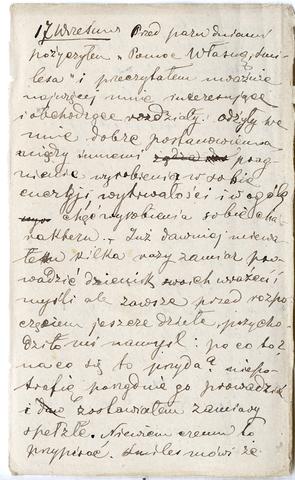 17 Wrzesień Przed paru dniami
pożyczyłem "Pomoc Własną, Smi-
lesa" i przeczytałem uważnie
najwięcej mnie interesujące
i obchodzące rozdziały. Ożyły we
mnie dobre postanowienia
między innemi prag-
nienie wyrobienia w sobie
energji wytrwałości i w ogóle
chęć wyrobienia sobie cha-
rakteru. Już dawniej miewa-
łem kilka razy zamiar pro-
wadzić dziennik swoich wrażeń i
myśli ale zawsze przed rozpo-
częciem jeszcze dzieła, przycho-
dziło mi na myśl: po co to?
na co się to przyda? nie po-
trafię porządnie go prowadzić
i zostawiałem zamiary
spełzłe. Niewiem czemu to
przypisać. Smiles mówi że